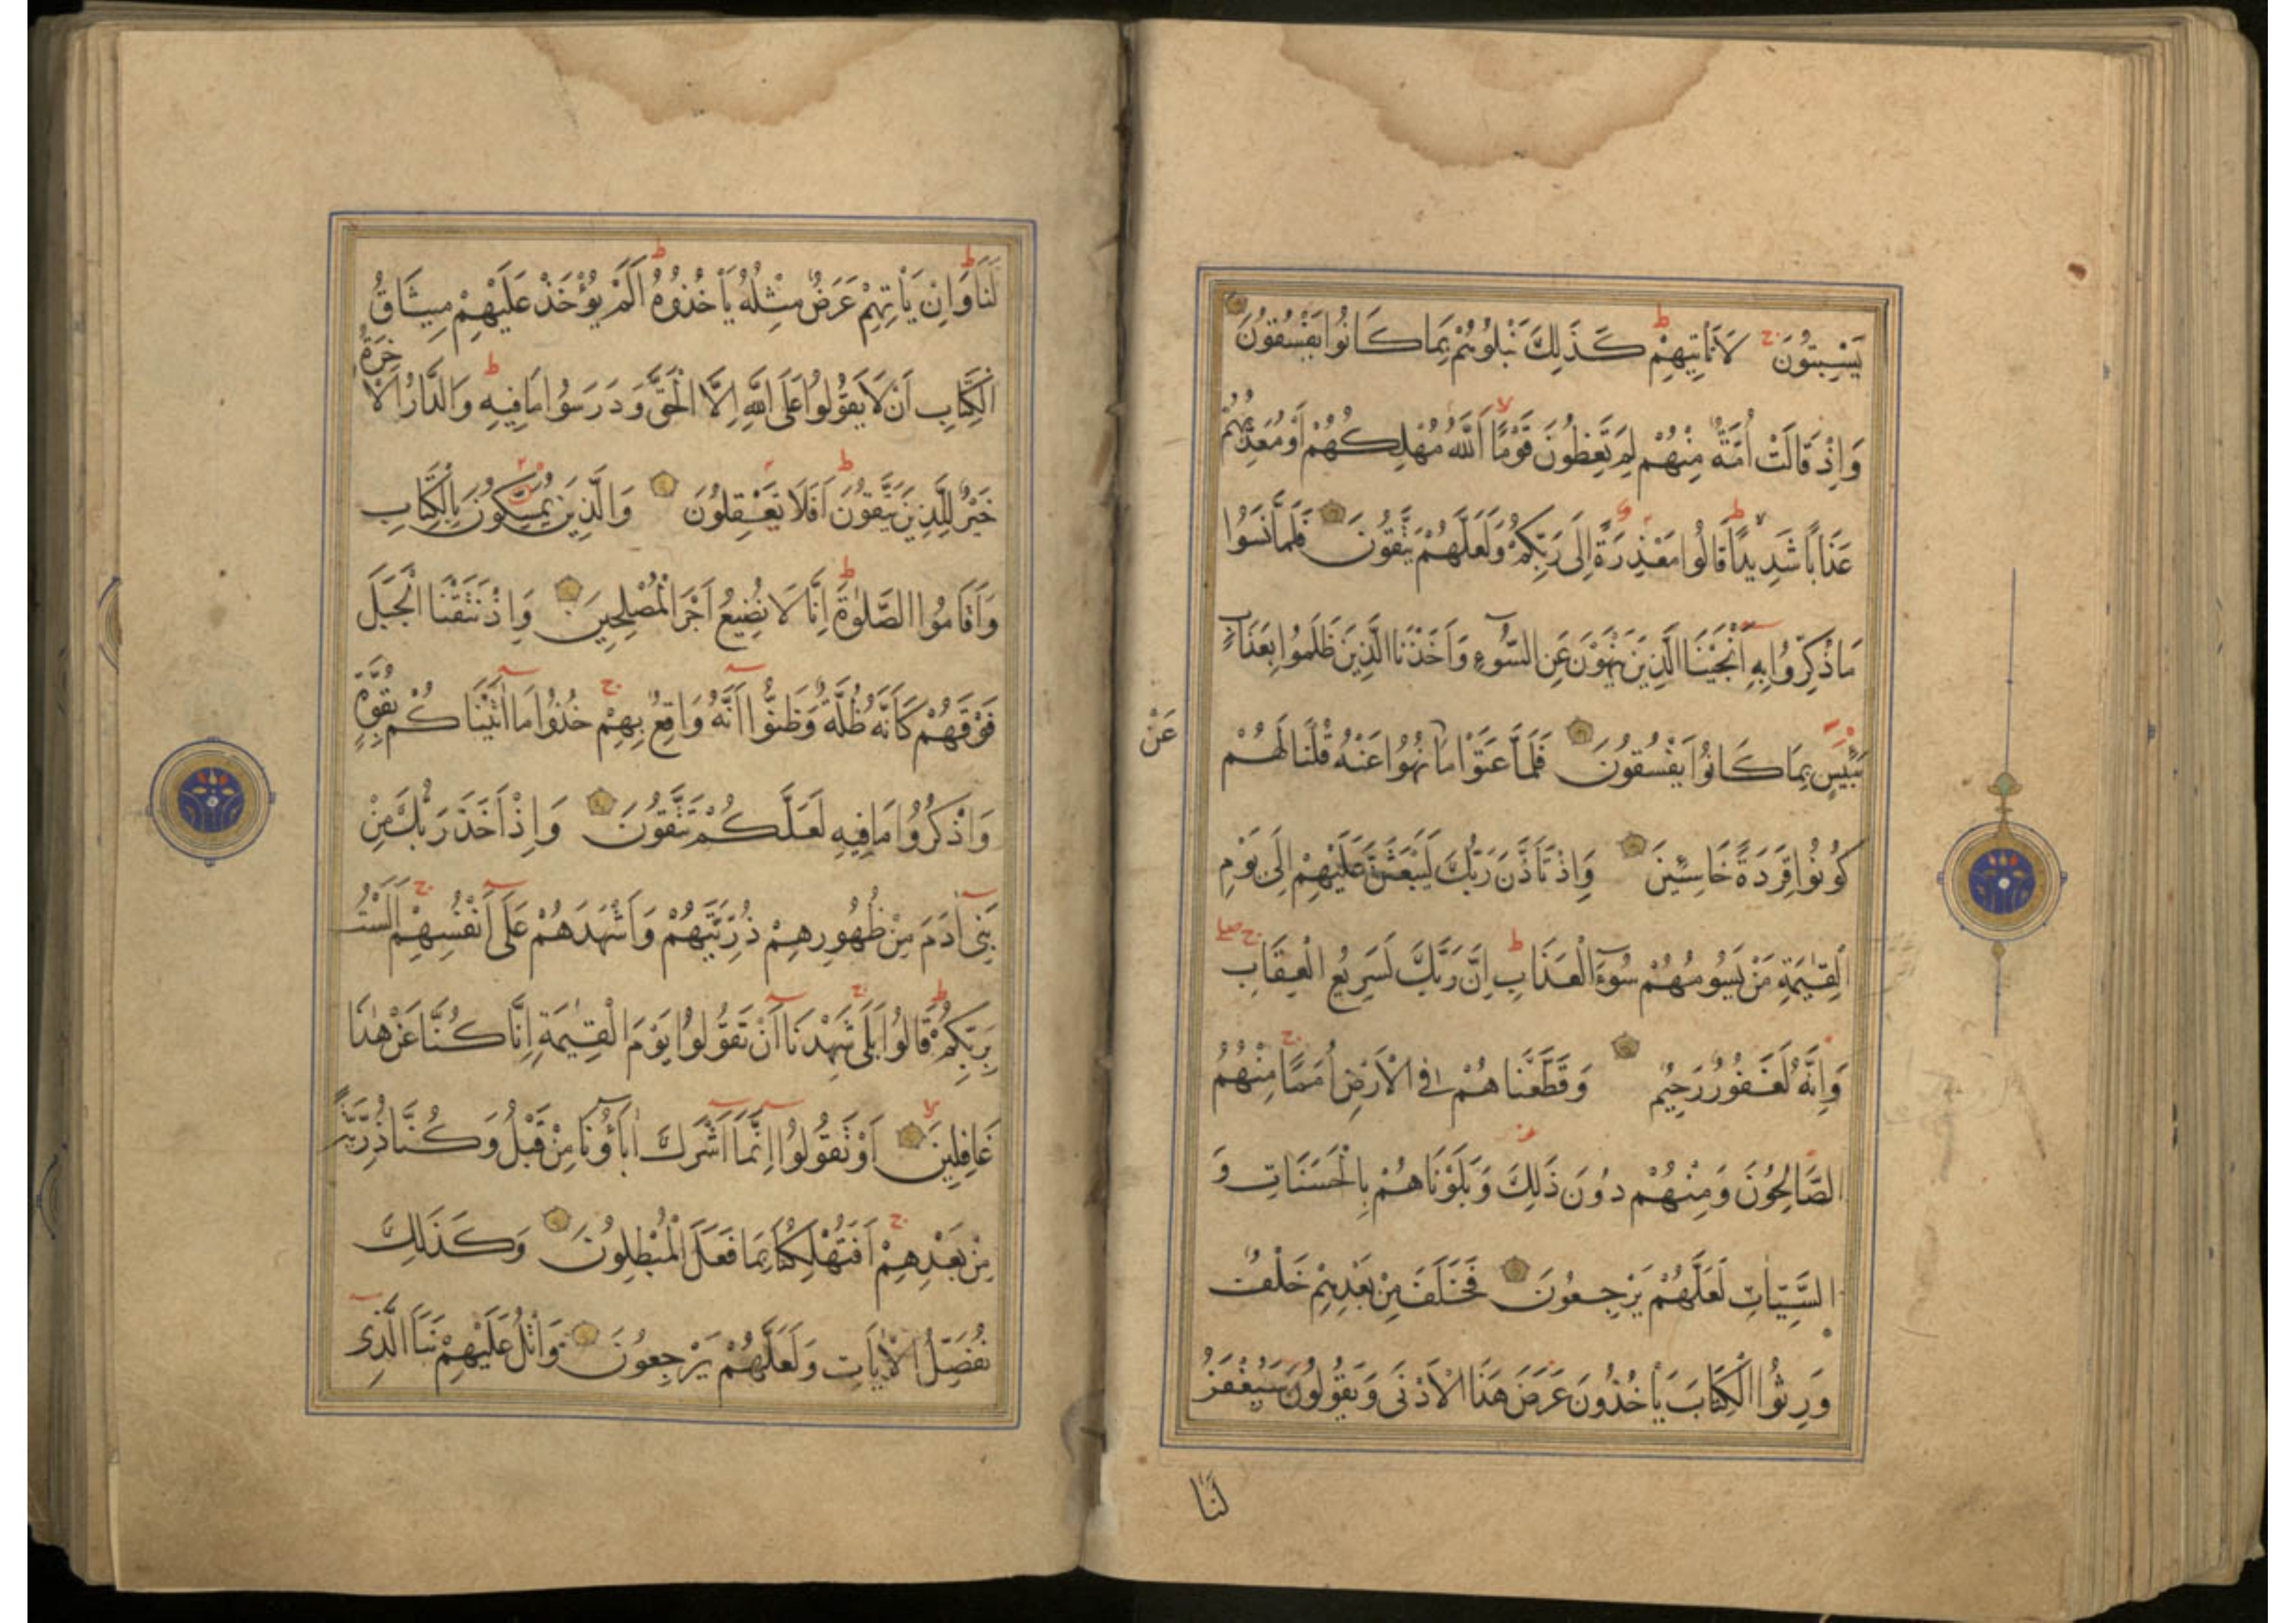 يَسْبِتُونَ لَا تَأْتِيهِمْ كَذَلِكَ نَبْلُوهُمْ بِمَا كَانُوا يَفْسُقُونَ
وَإِذْ قَالَتْ أُمَّةٌ مِنْهُمْ لِمَ تَعِظُونَ قَوْمًا اَللَّهُ مُهْلِكُهُمْ أَوْ مُعَذِّبُهُمْ
عَذَابًا شَدِيدًا قَالُوا مَعْذِرَةً إِلَى رَبِّكُمْ وَلَعَلَّهُمْ يَتَّقُونَ فَلَمَّا نَسُوا
مَا ذُكِّرُوا بِهِ أَنْجَيْنَا الَّذِينَ يَنْهَوْنَ عَنِ السُّوءِ وَأَخَذْنَا الَّذِينَ ظَلَمُوا بِعَذَابٍ
بَئِيسٍ بِمَا كَانُوا يَفْسُقُونَ فَلَمَّا عَتَوْا مَا نُهُوا عَنْهُ قُلْنَا لَهُمْ
عَنْ
كُونُوا قِرَدَةً خَاسِئِينَ وَإِذْ تَأَذَّنَ رَبُّكَ لَيَبْعَثَنَّ عَلَيْهِمْ إِلَى يَوْمِ
الْقِيٰمَةِ مَنْ يَسُومُهُمْ سُوءَ الْعَذَابِ إِنَّ رَبَّكَ لَسَرِيعُ الْعِقَابِ
وَإِنَّهُ لَغَفُورٌ رَحِيمٌ وَقَطَّعْنَاهُمْ فِي الْأَرْضِ أُمَمًا مِنْهُمُ
الصَّالِحُونَ وَمِنْهُمْ دُونَ ذَلِكَ وَبَلَوْنَاهُمْ بِالْحَسَنَاتِ وَ
السَّيِّئَاتِ لَعَلَّهُمْ يَرْجِعُونَ فَخَلَفَ مِنْ بَعْدِهِمْ خَلْفٌ
وَرِثُوا الْكِتَابَ يَأْخُذُونَ عَرَضَ هَذَا الْأَدْنَى وَيَقُولُونَ سَيُغْفَرُ
لَنَا
لَنَا وَإِنْ يَأْتِهِمْ عَرَضٌ مِثْلُهُ يَأْخُذُوهُ أَلَمْ يُؤْخَذْ عَلَيْهِمْ مِيثَاقُ
الْكِتَابِ أَنْ لَا يَقُولُوا عَلَى اللَّهِ إِلَّا الْحَقَّ وَدَرَسُوا مَا فِيهِ وَالدَّارُ الْآخِرَةُ
خَيْرٌ لِلَّذِينَ يَتَّقُونَ أَفَلَا تَعْقِلُونَ وَالَّذِينَ يُمَسِّكُونَ بِالْكِتَابِ
وَأَقَامُوا الصَّلٰوةَ إِنَّا لَا نُضِيعُ أَجْرَ الْمُصْلِحِينَ وَإِذْ نَتَقْنَا الْجَبَلَ
فَوْقَهُمْ كَأَنَّهُ ظُلَّةٌ وَظَنُّوا أَنَّهُ وَاقِعٌ بِهِمْ خُذُوا مَا اٰتَيْنَاكُمْ بِقُوَّةٍ
وَاذْكُرُوا مَا فِيهِ لَعَلَّكُمْ تَتَّقُونَ وَإِذْ أَخَذَ رَبُّكَ مِنْ
بَنِي اٰدَمَ مِنْ ظُهُورِهِمْ ذُرِّيَّتَهُمْ وَأَشْهَدَهُمْ عَلَى أَنْفُسِهِمْ أَلَسْتُ
بِرَبِّكُمْ قَالُوا بَلَى شَهِدْنَا أَنْ تَقُولُوا يَوْمَ الْقِيٰمَةِ إِنَّا كُنَّا عَنْ هٰذَا
غَافِلِينَ أَوْ تَقُولُوا إِنَّمَا أَشْرَكَ اٰبَاؤُنَا مِنْ قَبْلُ وَكُنَّا ذُرِّيَّةً
مِنْ بَعْدِهِمْ أَفَتُهْلِكُنَا بِمَا فَعَلَ الْمُبْطِلُونَ وَكَذَلِكَ
نُفَصِّلُ الْاٰيَاتِ وَلَعَلَّهُمْ يَرْجِعُونَ وَاتْلُ عَلَيْهِمْ نَبَأَ الَّذِي